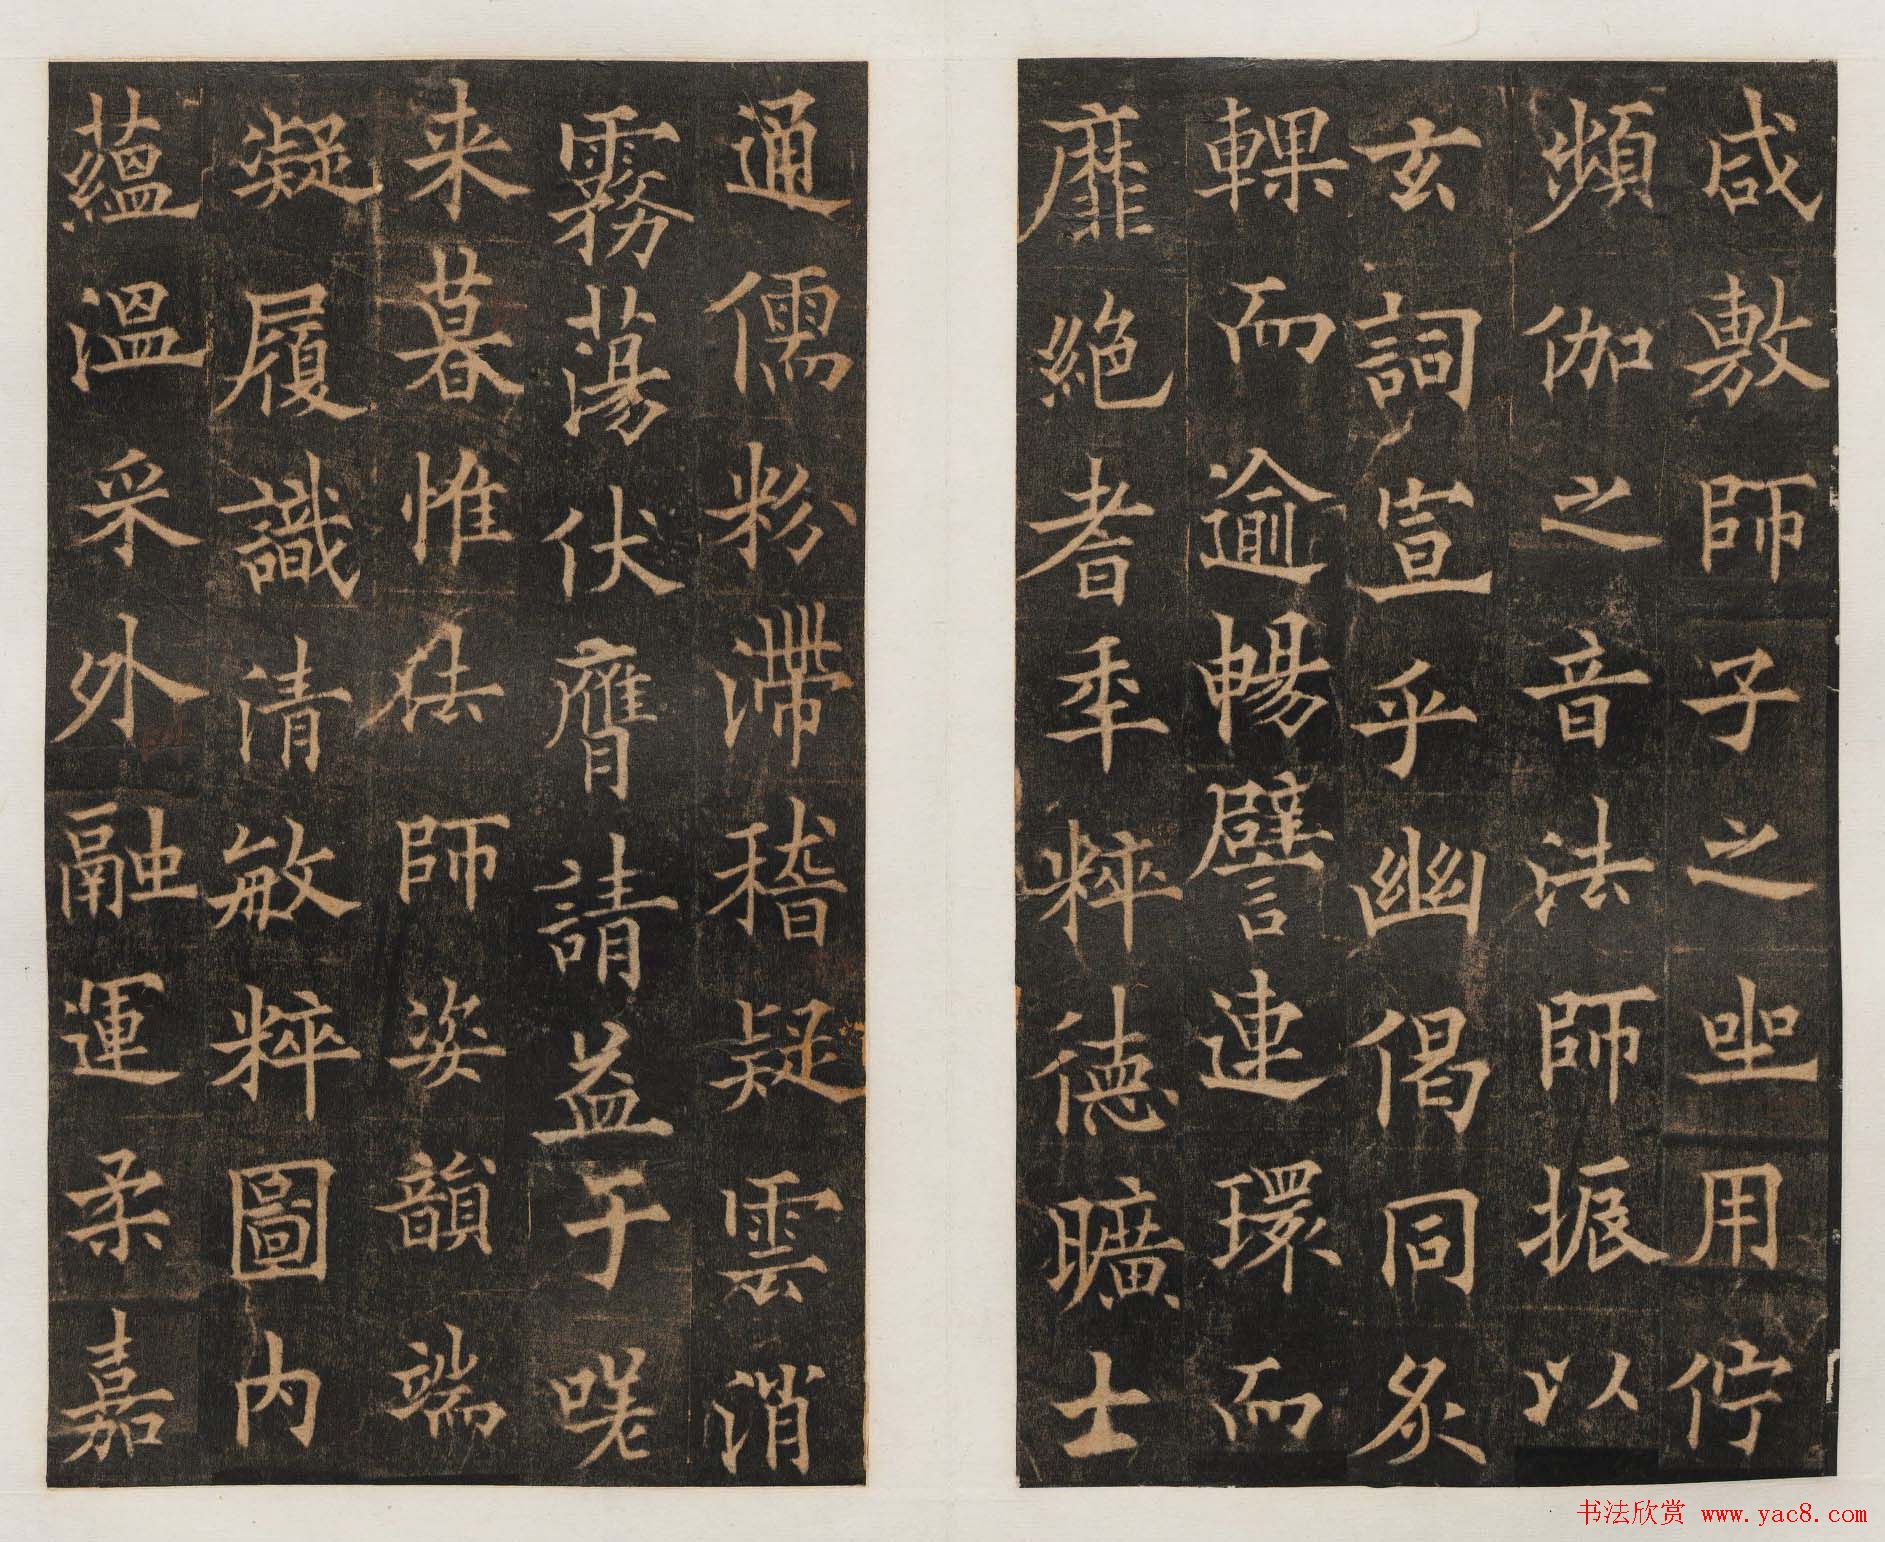 咸敷師子之坐用佇
頻伽之音法師振以
玄詞宣乎幽偈同炙
輠而逾暢譬連環而
靡絶耆年粹德曠士
通儒粉滯稽疑雲消
霧蕩伏膺請益于嗟
来暮惟法師姿韻端
凝履識清敏粹圖内
蘊溫采外融運柔嘉
书法欣赏 www.yac8.com